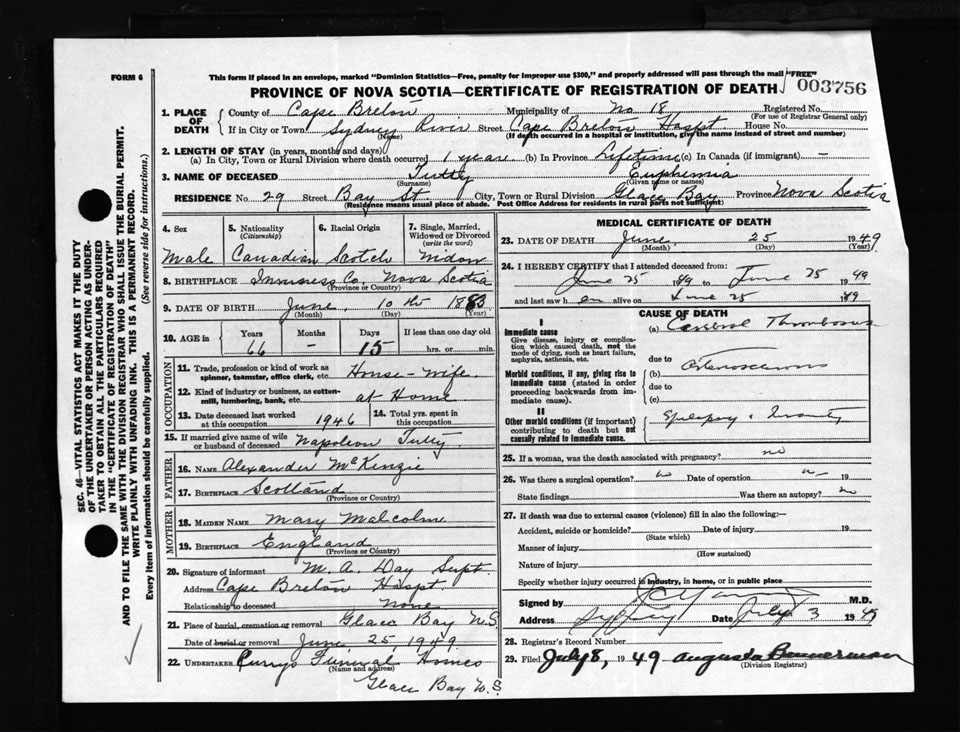 FORM 6
This form if placed in an envelope, marked "Dominion Statistics—Free, penalty for improper use $300," and properly addressed will pass through the mail "FREE"
PROVINCE OF NOVA SCOTIA—CERTIFICATE OF REGISTRATION OF DEATH 003756
1. PLACE OF DEATH
County of Cape Breton Municipality of No 18 Registered No.
(For use of Registrar General only)
If in City or Town Sydney River Street Cape Breton Hospt. House No.
(Name) (If death occurred in a hospital or institution, give the name instead of street and number)
2. LENGTH OF STAY (in years, months and days)
(a) In City, Town or Rural Division where death occurred 1 year (b) In Province Lifetime (c) In Canada (if immigrant) —
3. NAME OF DECEASED Euphemia
(Surname) (Given name or names)
RESIDENCE No. 29 Street Bay St. City, Town or Rural Division Glace Bay Province Nova Scotia
(Residence means usual place of abode. Post Office Address for residents in rural parts not sufficient)
4. Sex 5. Nationality (Citizenship) 6. Racial Origin 7. Single, Married, Widowed or Divorced (write the word)
Male Canadian Scotch Widow
8. BIRTHPLACE Inverness Co, Nova Scotia
(Province or Country)
9. DATE OF BIRTH June 10th 1883
(Month) (Day) (Year)
10. AGE in Years Months Days If less than one day old
66 – 15 hrs. or min.
OCCUPATION
11. Trade, profession or kind of work as spinner, teamster, office clerk, etc. House-wife.
12. Kind of industry or business, as cotton-mill, lumbering, bank, etc. at Home
13. Date deceased last worked at this occupation 1946 14. Total yrs. spent in this occupation
15. If married give name of wife or husband of deceased Napoleon
FATHER
16. NAME Alexander McKinzie
17. BIRTHPLACE Scotland
(Province or Country)
MOTHER
18. MAIDEN NAME Mary Malcolm
19. BIRTHPLACE England
(Province or Country)
20. Signature of informant M. A. Day Supt.
Address Cape Breton Hospt.
Relationship to deceased None
21. Place of burial, cremation or removal Glace Bay N.S.
Date of burial or removal June 25, 1949
22. UNDERTAKER Currys Funeral Homes
Glace Bay N.S.
MEDICAL CERTIFICATE OF DEATH
23. DATE OF DEATH June 25 1949
(Month) (Day) (Year)
24. I HEREBY CERTIFY that I attended deceased from
June 25 1949 to June 25 1949
and last saw h er alive on June 25 1949
CAUSE OF DEATH
I
Immediate cause
Give disease, injury or complication which caused death, not the mode of dying, such as heart failure, asphyxia, asthenia, etc.
(a) Cerebral Thrombosis
due to
Morbid conditions, if any, giving rise to immediate cause (stated in order proceeding backwards from immediate cause).
(b)
due to
(c)
II
Other morbid conditions (if important) contributing to death but not causally related to immediate cause.
Epilepsy & Insanity
25. If a woman, was the death associated with pregnancy? no
26. Was there a surgical operation? no Date of operation 19
State findings Was there an autopsy? no
27. If death was due to external causes (violence) fill in also the following:—
Accident, suicide or homicide? Date of injury 19
(State which)
Manner of injury
(How sustained)
Nature of injury
Specify whether injury occurred in industry, in home, or in public place
Signed by M.D.
Address Sydney Date July 3 1949
28. Registrar's Record Number
29. Filed July 8, 1949 Augusta Bannerman
(Division Registrar)
SEC. 46—VITAL STATISTICS ACT MAKES IT THE DUTY
OF THE UNDERTAKER OR PERSON ACTING AS UNDER-
TAKER TO OBTAIN ALL THE PARTICULARS REQUIRED
IN THE "CERTIFICATE OF REGISTRATION OF DEATH"
AND TO FILE THE SAME WITH THE DIVISION REGISTRAR WHO SHALL ISSUE THE BURIAL PERMIT.
WRITE PLAINLY WITH UNFADING INK. THIS IS A PERMANENT RECORD.
Every item of information should be carefully supplied. (See reverse side for instructions.)